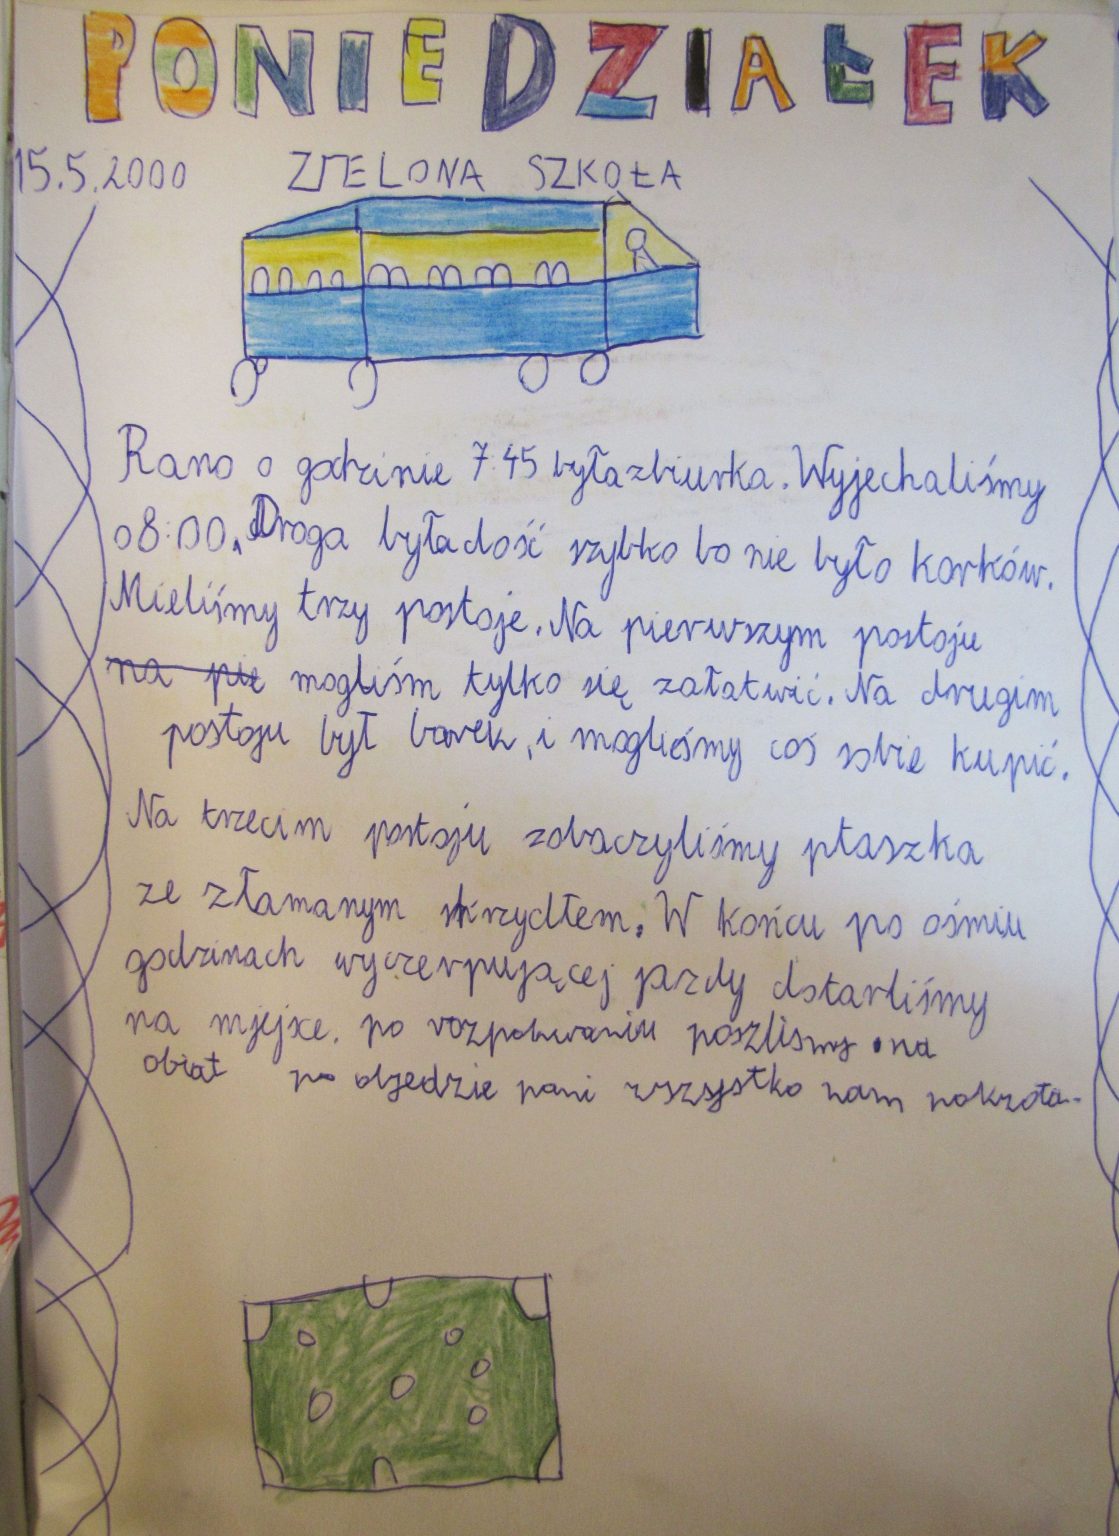 PONIEDZIAŁEK
15.5.2000 ZIELONA SZKOŁA
Rano o godzinie 7:45 byłazbiurka. Wyjechaliśmy
o8:00. Droga byładość szybko bo nie było korków.
Mieliśmy trzy postoje. Na pierwszym postoju
na pie mogliśm tylko się załatwić. Na drugim
postoju był barek, i mogliśmy coś sobie kupić.
Na trzecim postoju zobaczyliśmy ptaszka
ze złamanym skrzydłem. W końcu po ośmiu
godzinach wyczerpującej jazdy dotarliśmy
na miejsce. po rozpakowaniu poszliśmy na
obiat po objedzie pani wszystko nam